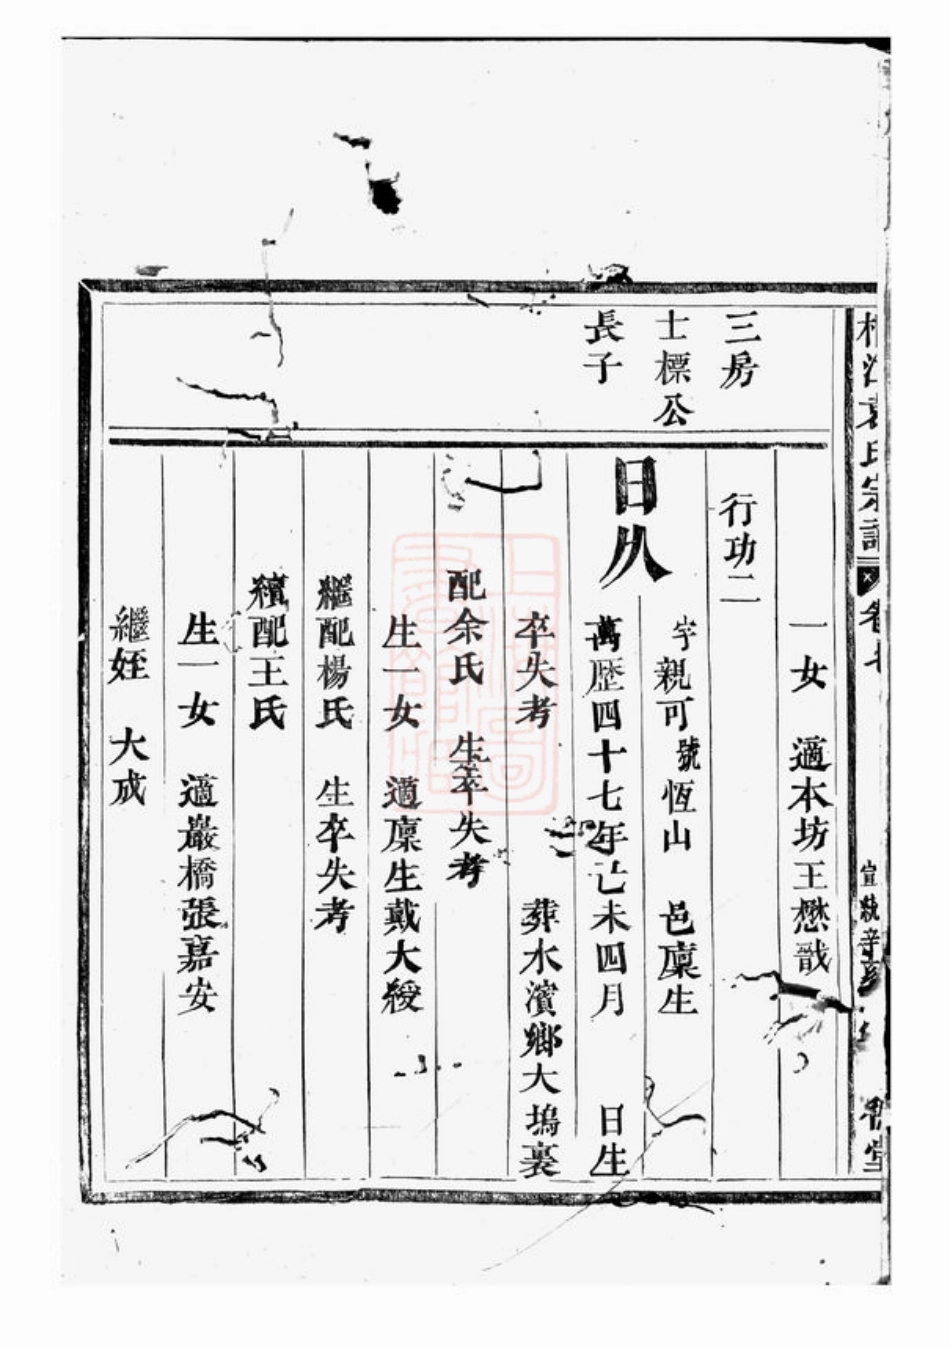 江袁氏宗譜
卷七
宣統辛亥
堂
一女 適本坊王懋戩
三房
行功二
士標公
字親可號恆山 邑廩生
長子
日久
萬歷四十七年己未四月 日生
卒失考 葬水濱鄉大塢裏
配余氏 生卒失考
生一女 適廩生戴大綬
繼配楊氏 生卒失考
續配王氏
生一女 適巖橋張嘉安
繼姪 大成